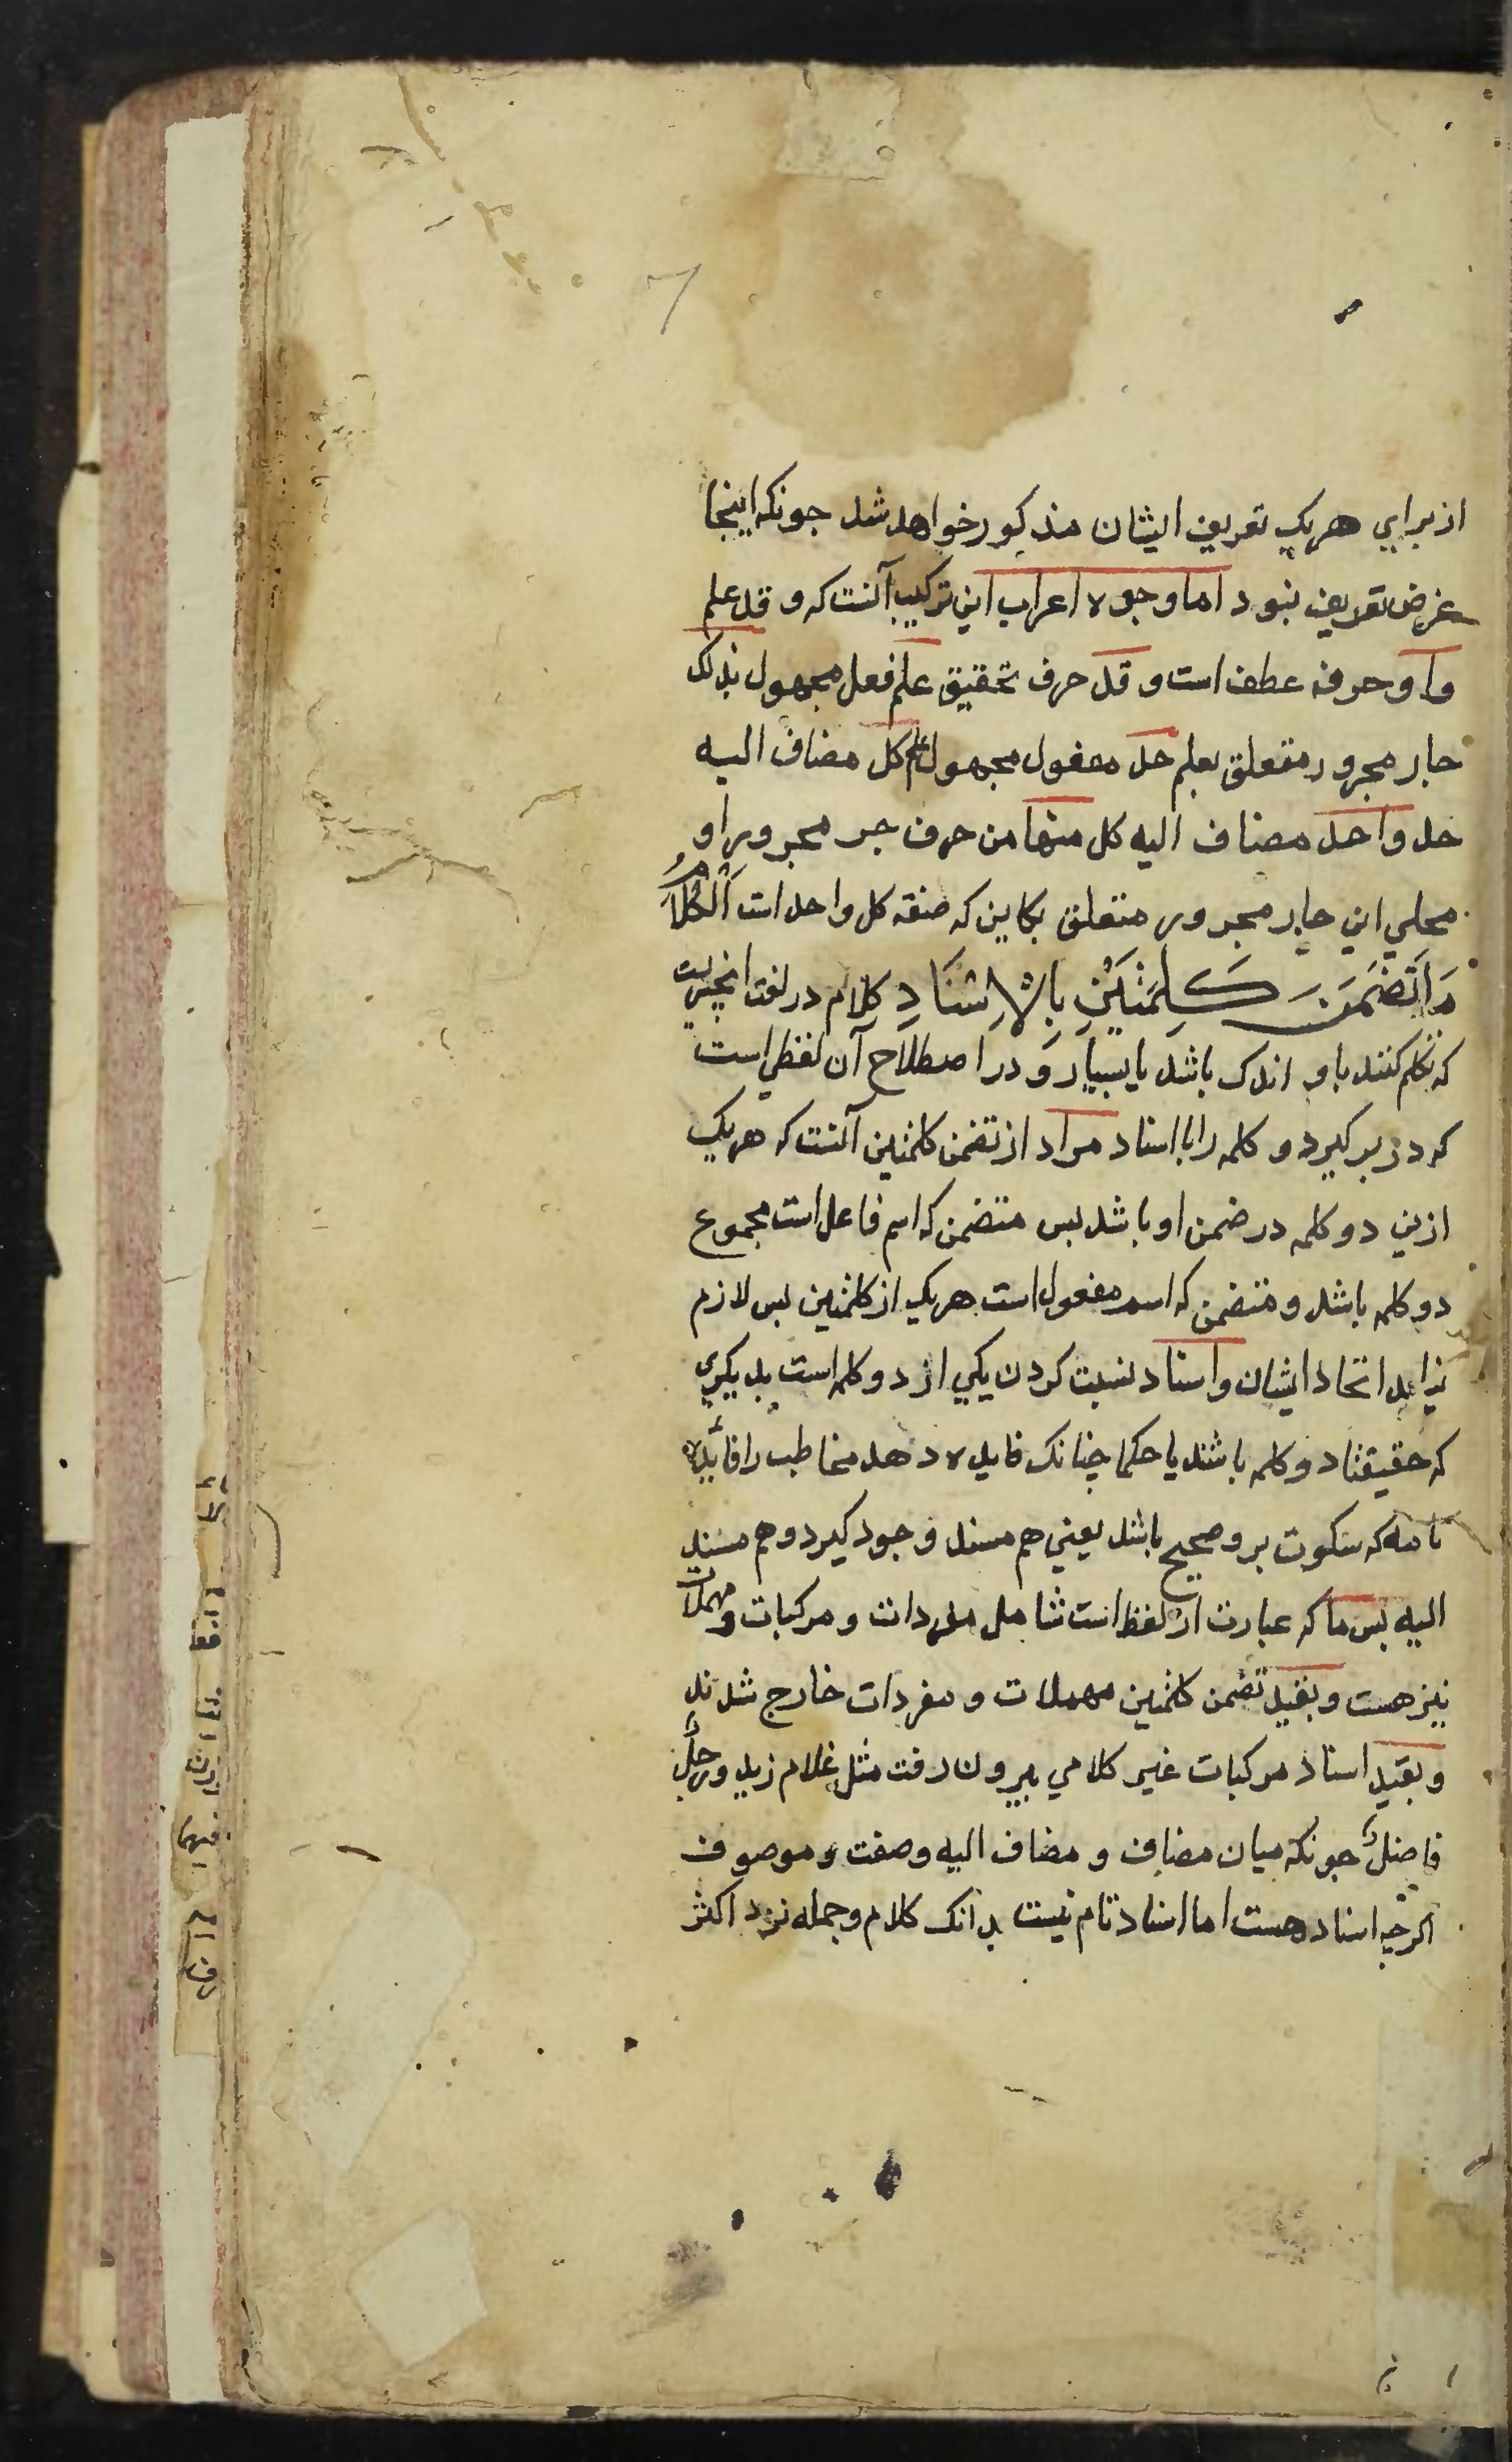 از براي هر يك تعريف ايشان مذكور خواهد شد جونكه اينجا
غرض تعريف نبود اما وجوه اعراب اين تركيب آنست كه و قد علم
واو حرف عطف است و قد حرف تحقيق علم فعل مجهول بذلك
جار مجرور متعلق بعلم حد مفعول مجهول علم كل مضاف اليه
حد واحد مضاف اليه كل منها من حرف جر مجرور او
محلي اين جار مجرور متعلق بكاين كه صفة كل واحد است اَلْكَلَامُ
مَا تَضَمَّنَ كَلِمَتَيْنِ بِالْاِسْنَادِ كلام در لغت انچيزيست
كه تكلم كنند باو اندك باشد يا بسيار و در اصطلاح آن لفظي است
كه در بر كيرد دو كلمه را با اسناد مراد از تضمن كلمتين آنست كه هر يك
ازين دو كلمه در ضمن او باشد پس متضمن كه اسم فاعل است مجموع
دو كلمه باشد و متضمن كه اسم مفعول است هر يك از كلمتين پس لازم
نيايد اتحاد ايشان و اسناد نسبت كردن يكي از دو كلمه است بديكري
كه حقيقتا دو كلمه باشند يا حكما چنانك فايده دهد مخاطب را فائده
تامه كه سكوت برو صحيح باشد يعني هم مسند وجود كيرد و هم مسند
اليه پس ما كه عبارت از لفظ است شامل مفردات و مركبات و مهملات
نيز هست و بقيد تضمن كلمتين مهملات و مفردات خارج شدند
و بقيد اسناد مركبات غير كلامي بيرون رفت مثل غلام زيد و رجلٌ
فاضلٌ جونكه ميان مضاف و مضاف اليه و صفت و موصوف
اكرچه اسناد هست اما اسناد تام نيست بدانك كلام و جمله نزد اكثر